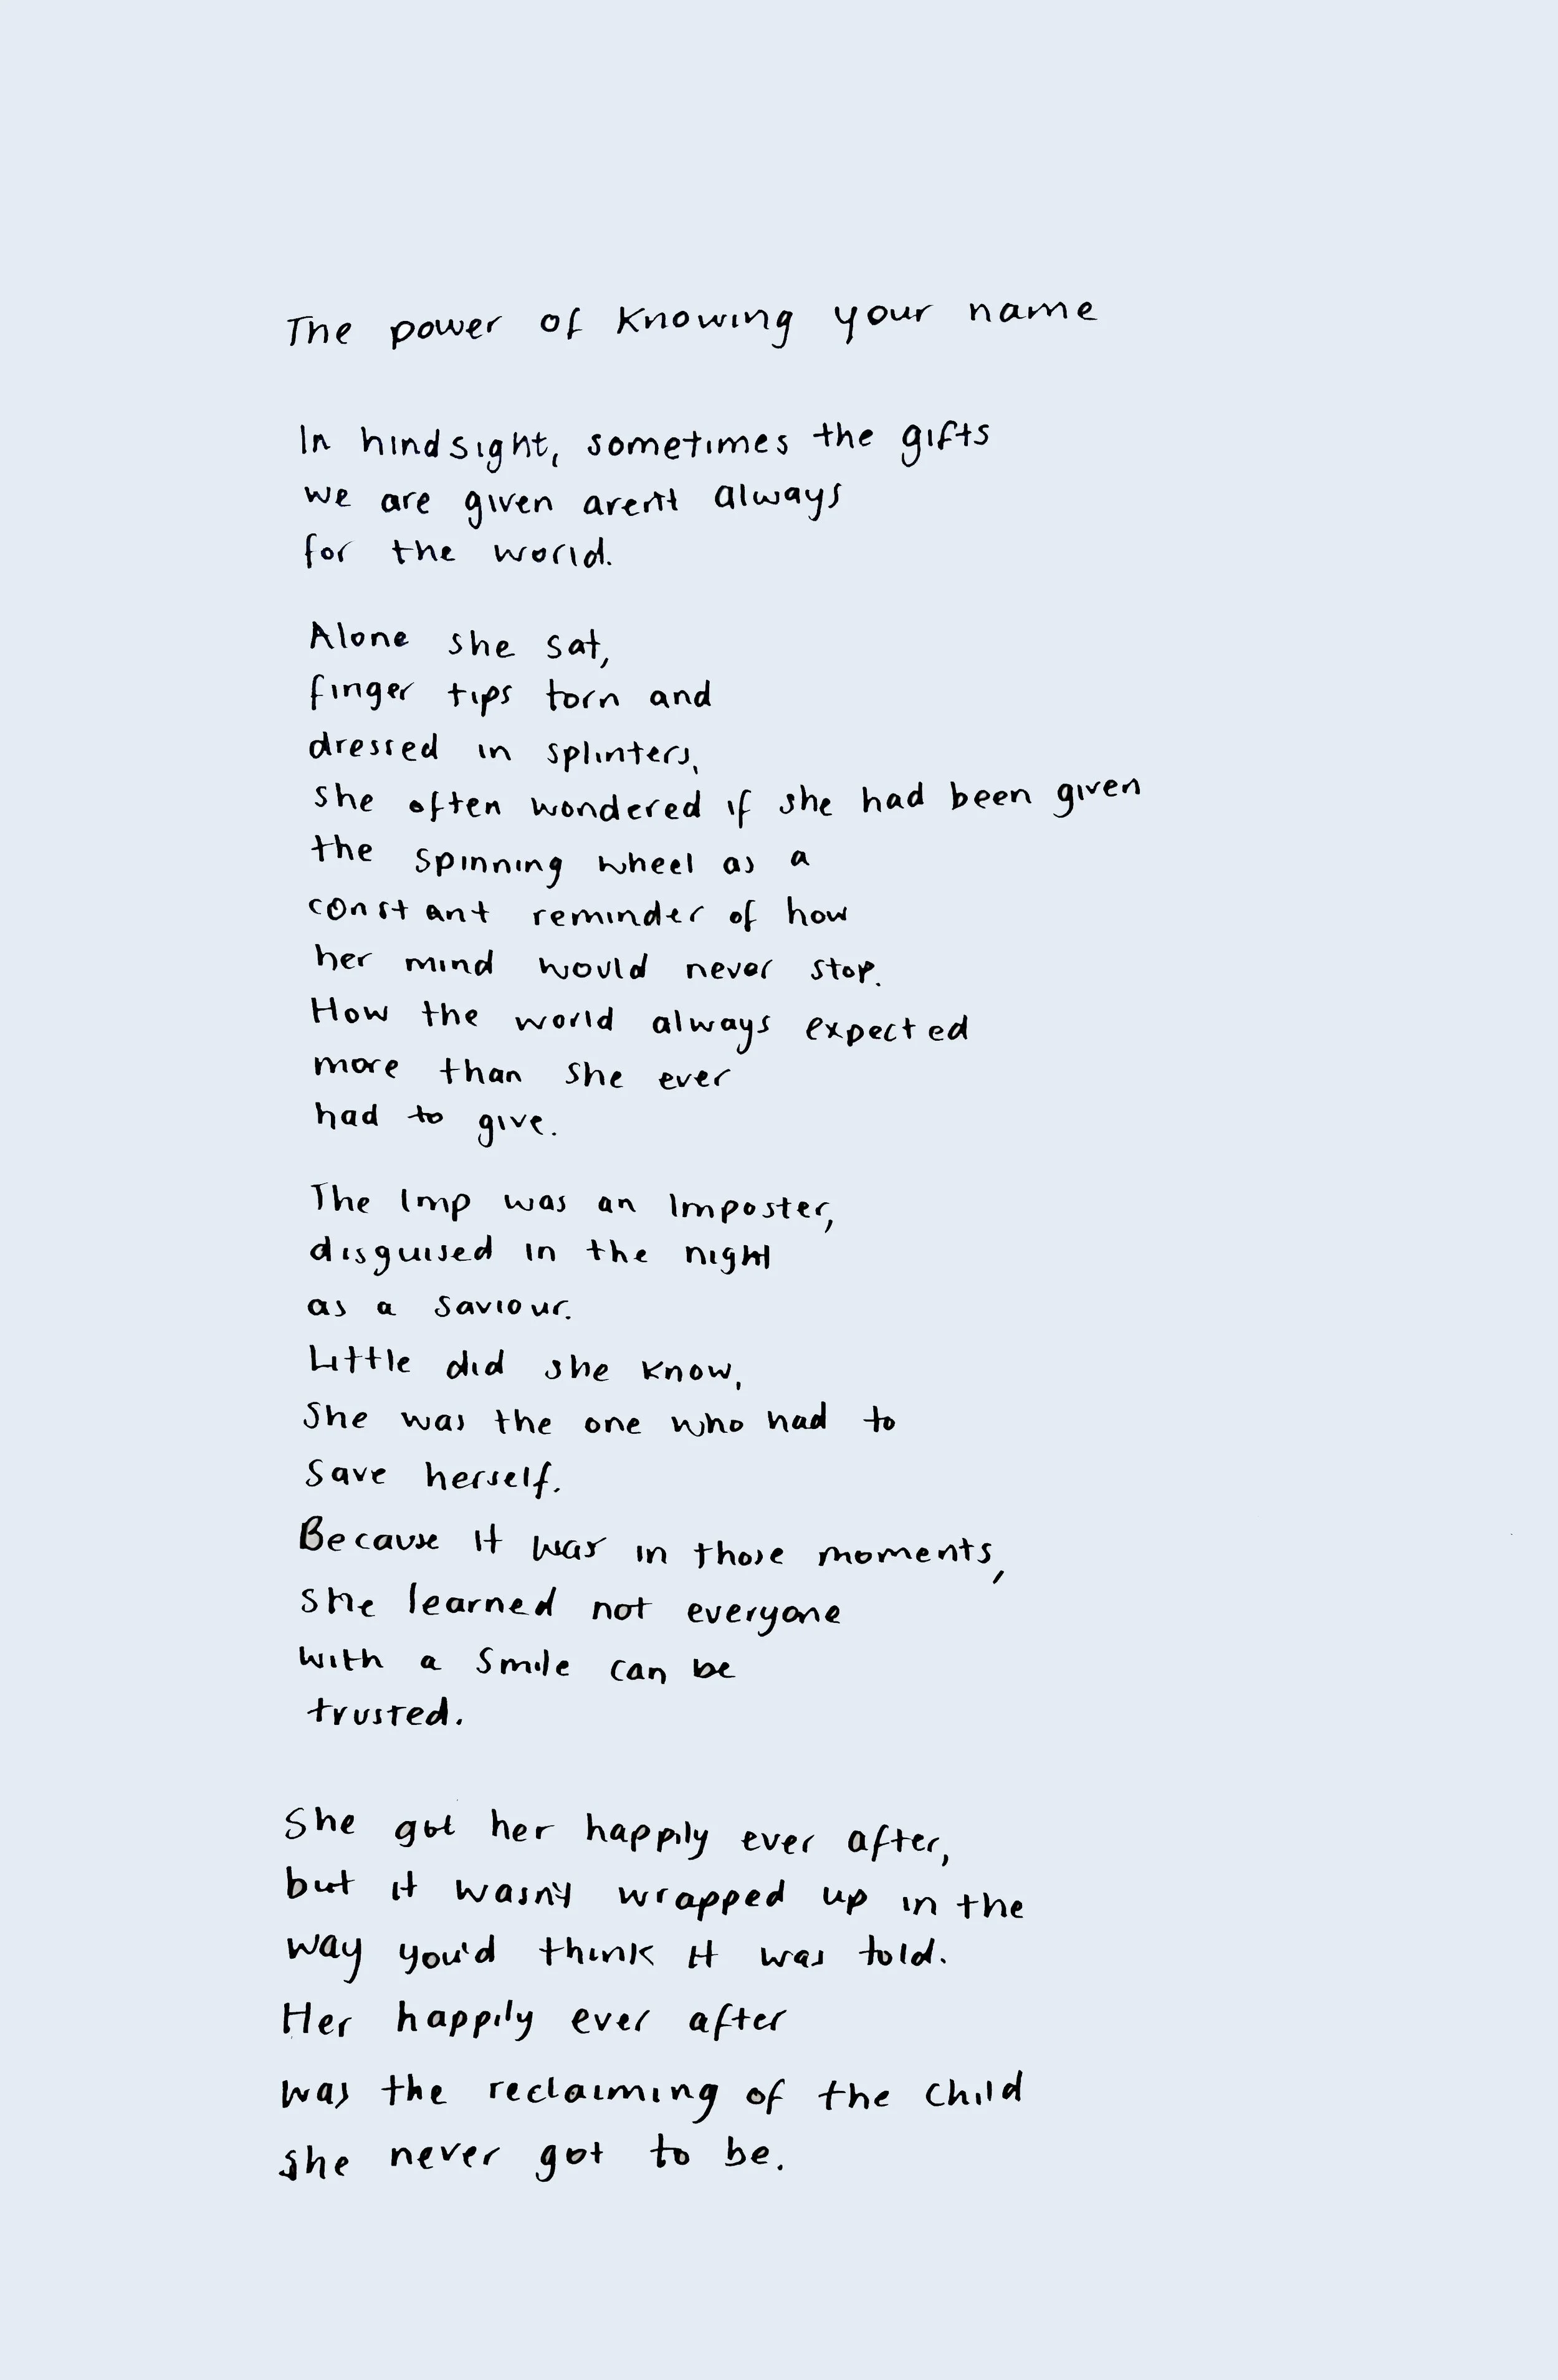 The power of knowing your name
In hindsight, sometimes the gifts
we are given aren't always
for the world.
Alone she sat,
finger tips torn and
dressed in splinters,
she often wondered if she had been given
the spinning wheel as a
constant reminder of how
her mind would never stop.
How the world always expected
more than she ever
had to give.
The Imp was an Imposter,
disguised in the night
as a saviour.
Little did she know,
She was the one who had to
save herself.
Because it was in those moments,
she learned not everyone
with a smile can be
trusted.
She got her happily ever after,
but it wasn't wrapped up in the
way you'd think it was told.
Her happily ever after
was the reclaiming of the child
she never got to be.